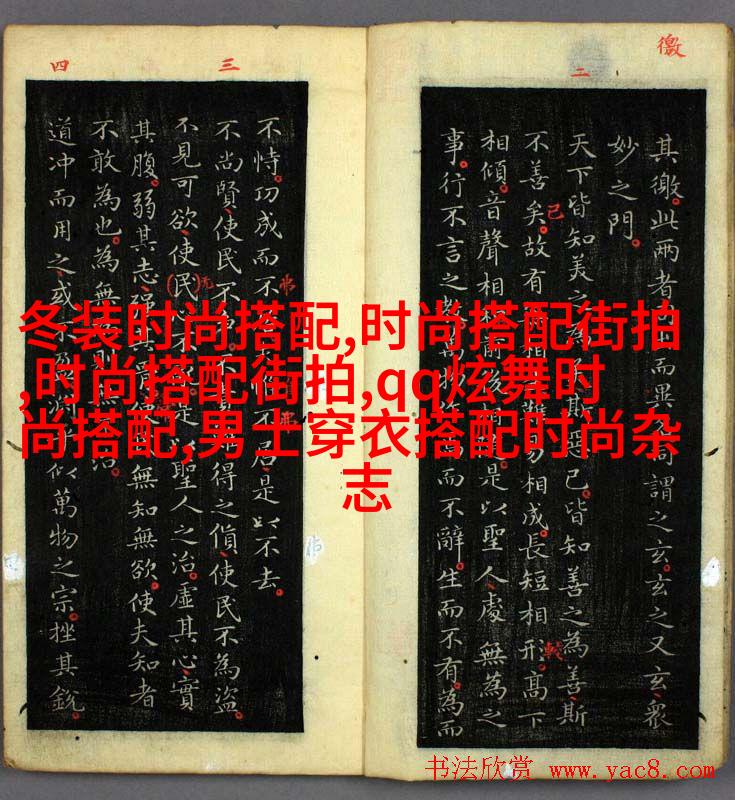 冬装时尚搭配,时尚搭配街拍
,时尚搭配街拍,qq炫舞时
尚搭配,男士穿衣搭配时尚杂
志
徼
二
其徼。此兩者而異同謂之玄。玄之又玄。衆
妙之門。
天下皆知美之為斯惡已。皆知善之為善斯
不善矣。故有相難易相成。長短相形。高下
相傾。音聲相前是以聖人處無為之
事。行不言之萬物而不辭。生而不有。為而
三
四
不恃。功成而不不居是以不去。
不尚賢。使民不不貴得之貨。使民不為盜。
不見可欲。使民不是以聖人之治。虛其心。實
其腹。弱其志。強其骨無知無欲。使夫知者
不敢為也。為無則治。
道冲而用之。或不盈似萬物之宗。挫其銳。
书法欣赏 www.yac8.com